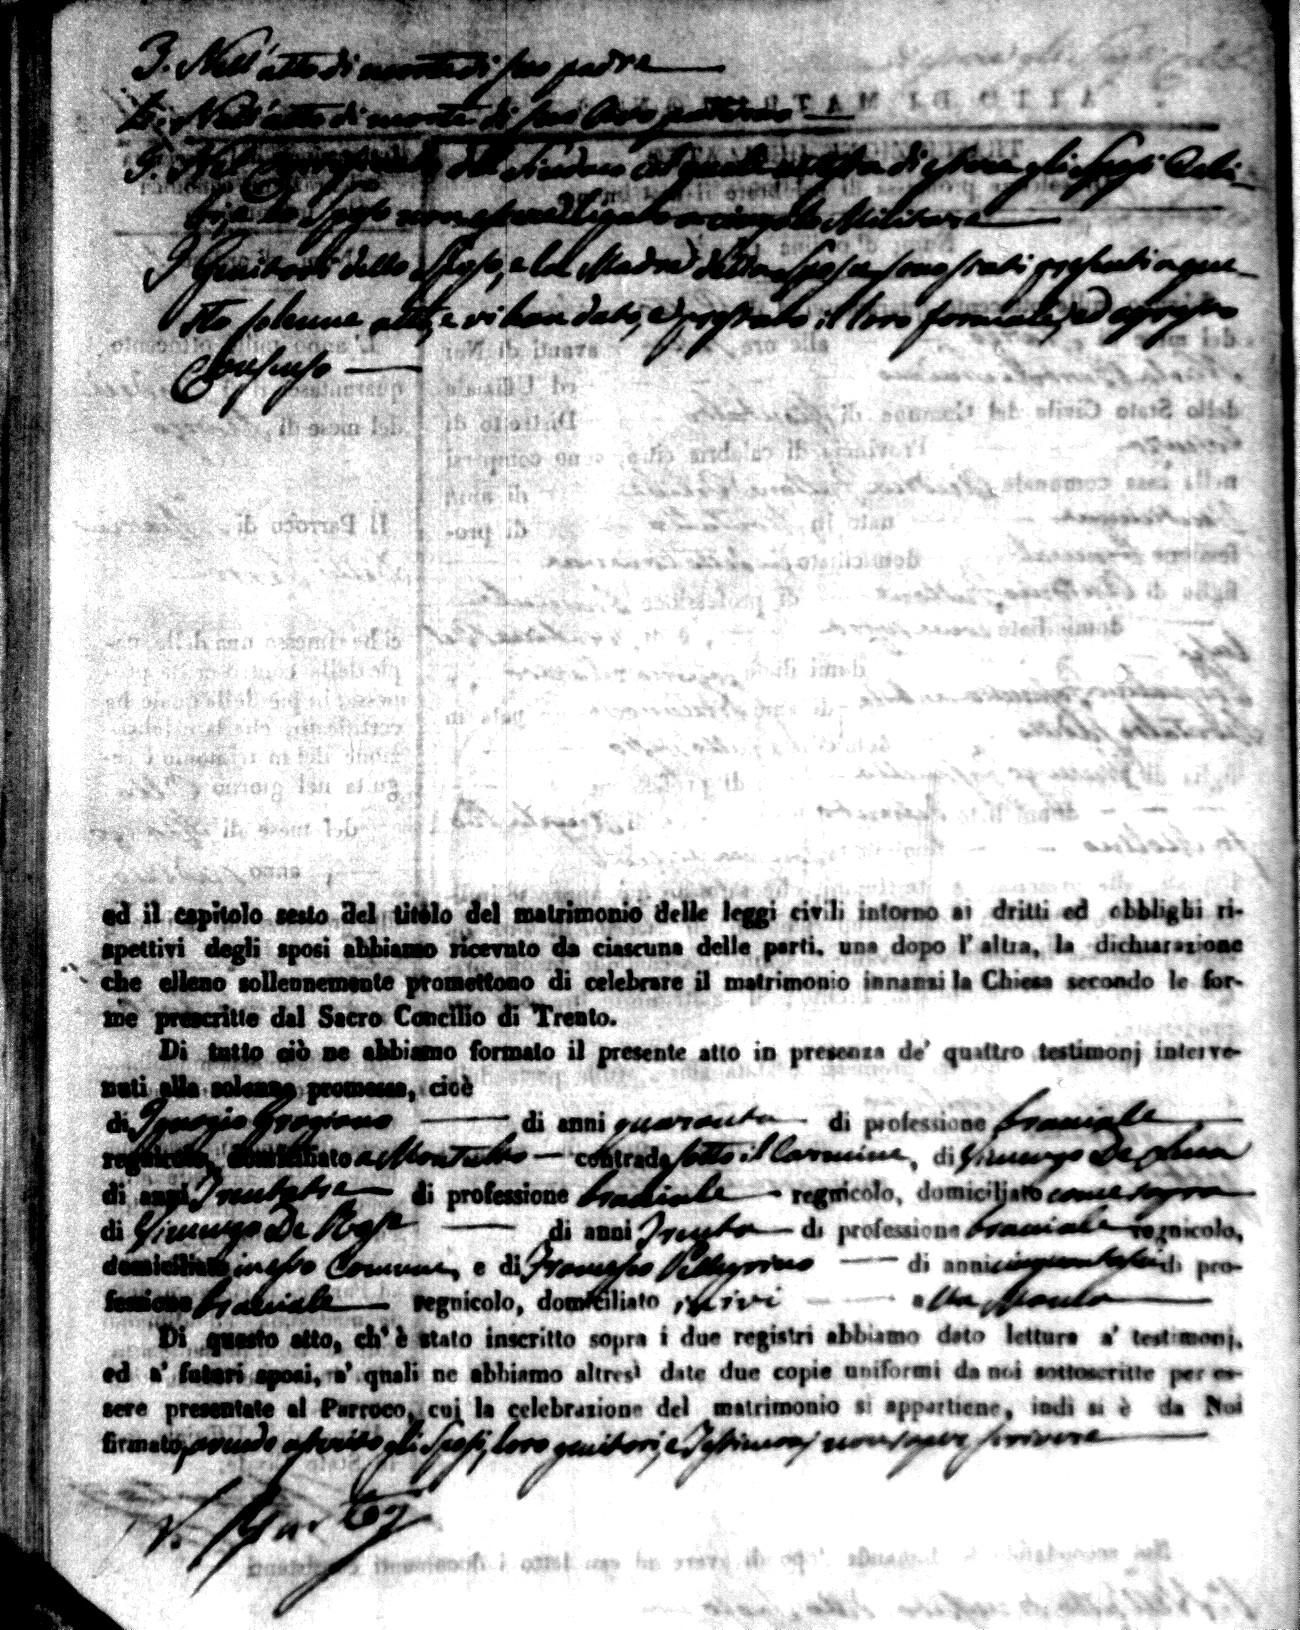 3. Nell'atto di morte di suo padre
4. Nell'atto di morte di suo Avo paterno
5. Nel del Sindaco col quale attesta di essere gli Sposi Celi-
bi, e lo Sposo non essere ligato a cingolo Militare
I Genitori dello Sposo, e la Madre della Sposa sono stati presenti a que-
sto solenne atto, e vi han dato, e prestato il loro formale, ed espresso
Consenso
ed il capitolo sesto del titolo del matrimonio delle leggi civili intorno ai dritti ed obblighi ri-
spettivi degli sposi abbiamo ricevuto da ciascuna delle parti, una dopo l'altra, la dichiarazione
che elleno sollennemente promettono di celebrare il matrimonio innanzi la Chiesa secondo le for-
me prescritte dal Sacro Concilio di Trento.
Di tutto ciò ne abbiamo formato il presente atto in presenza de' quattro testimonj interve-
nuti alla solenne promessa, cioè
di Ignazio Graziano di anni quaranta di professione bracciale
regnicolo, domiciliato a Montalto contrada sotto il Carmine, di Vincenzo De Luca
di anni Trentatre di professione bracciale regnicolo, domiciliato come sopra
di Vincenzo De Rose di anni Trenta di professione bracciale regnicolo,
domiciliato in esso Comune, e di Francesco Pellegrino di anni cinquantasei di pro-
fessione bracciale regnicolo, domiciliato ivi
Di questo atto, ch'è stato inscritto sopra i due registri abbiamo dato lettura a' testimonj,
ed a' futuri sposi, a' quali ne abbiamo altresì date due copie uniformi da noi sottoscritte per es-
sere presentate al Parroco, cui la celebrazione del matrimonio si appartiene, indi si è da Noi
firmato, avendo asserito gli Sposi, loro genitori, e Testimonj non sapere scrivere